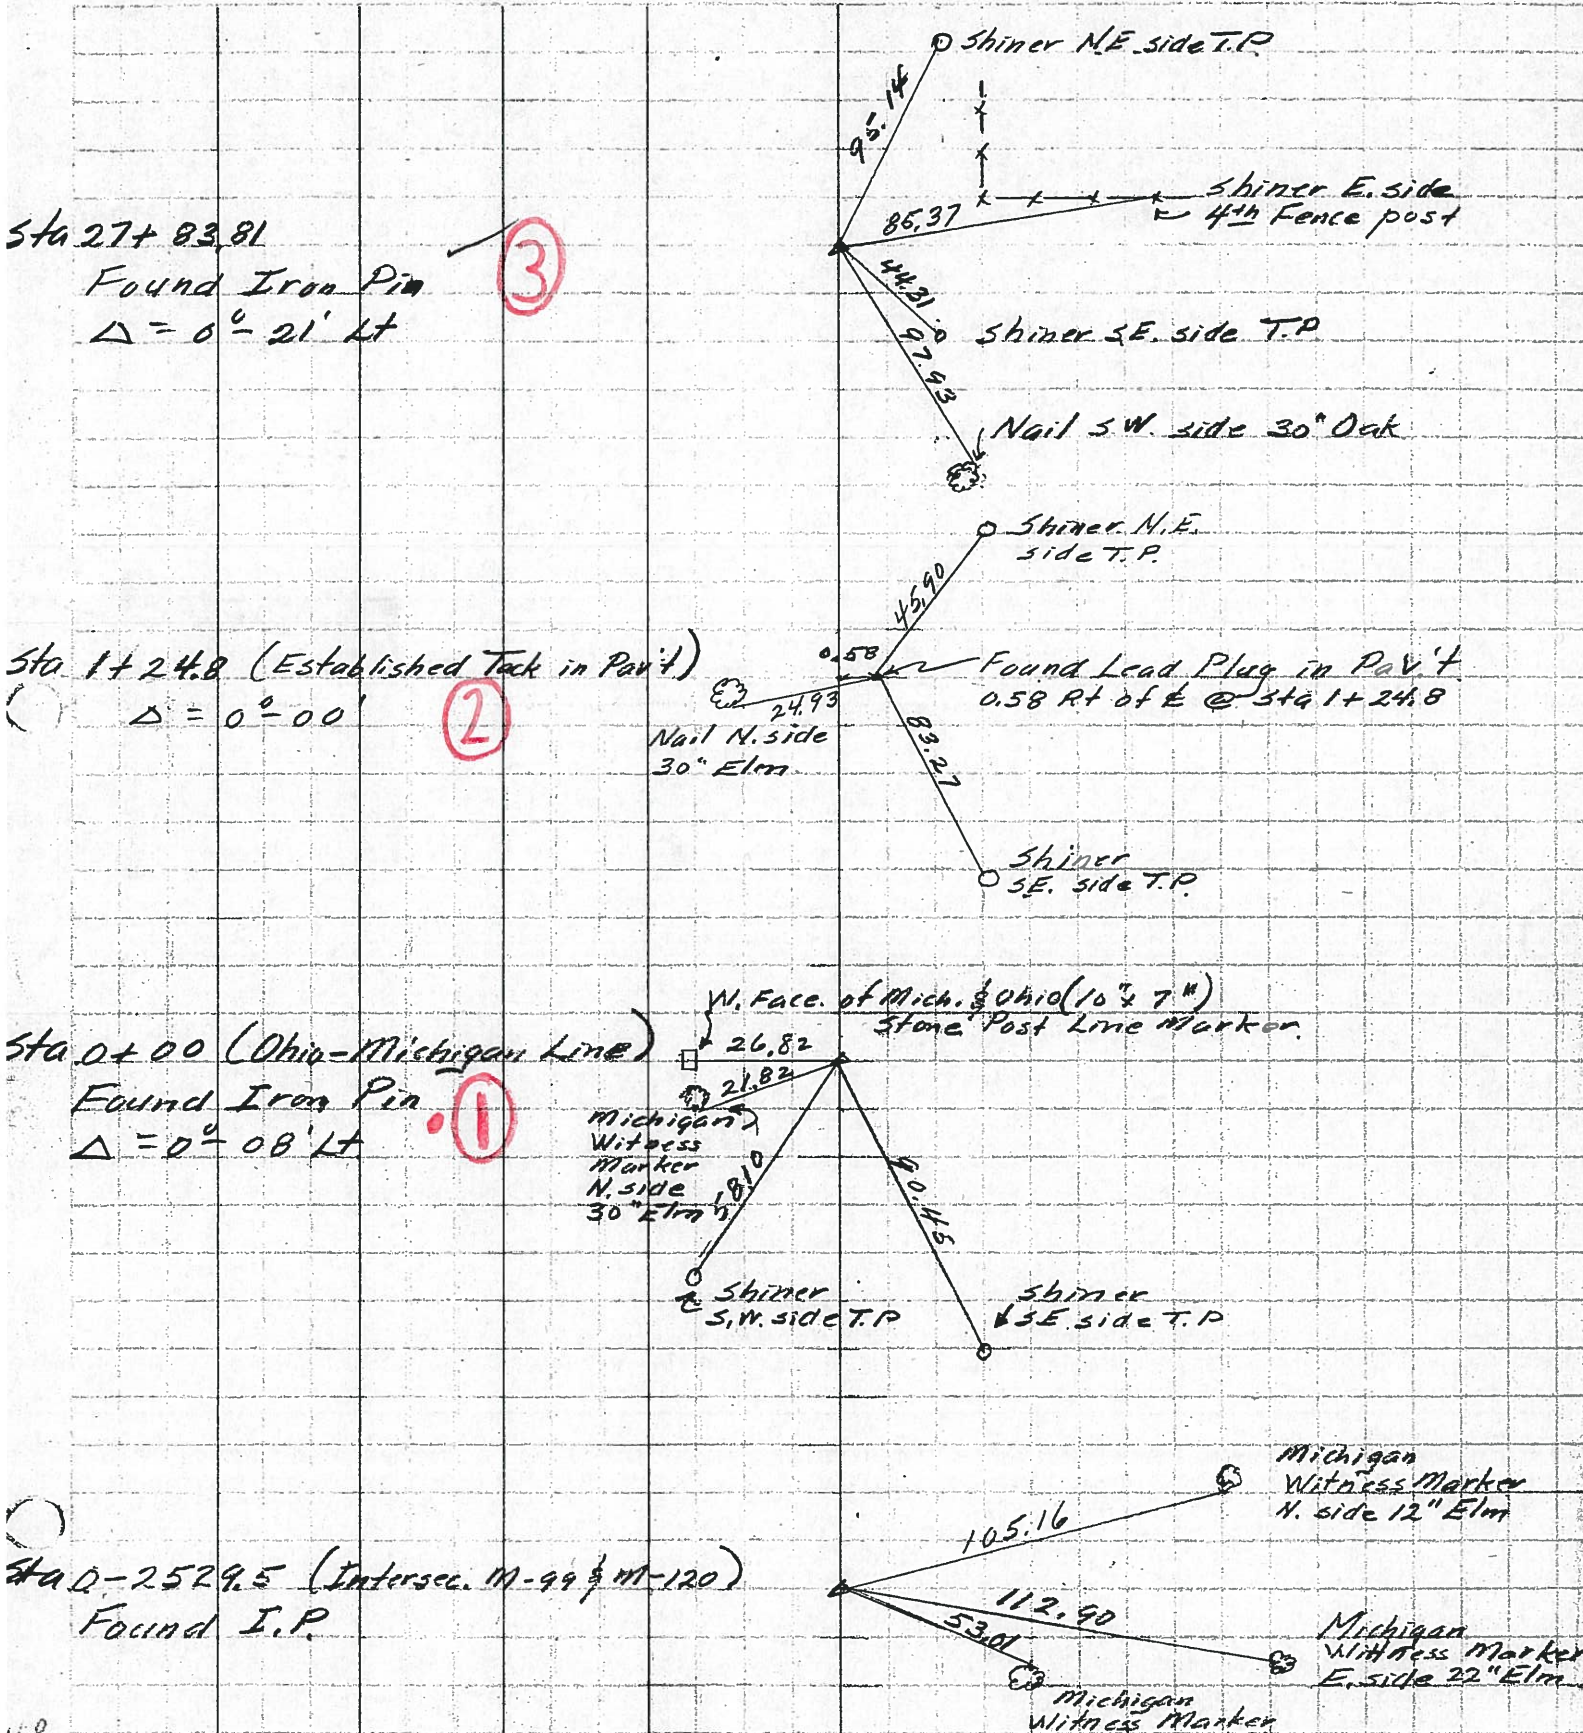 Shiner N.E. side T.P.
95.14
Shiner E. side
4th Fence post
86.37
Sta 27+83.81
Found Iron Pin
Δ = 0°-21' Lt
3
44.31
Shiner S.E. side T.P.
97.93
Nail S.W. side 30" Oak
Shiner N.E.
side T.P.
45.90
Sta 1+24.8 (Established Tack in Pav't)
Δ = 0°-00'
2
0.58
Found Lead Plug in Pav't.
0.58 Rt of ℄ @ Sta 1+24.8
24.93
Nail N. side
30" Elm
83.27
Shiner
S.E. side T.P.
W. Face of Mich. & Ohio (10" x 7")
Stone Post Line Marker
Sta 0+00 (Ohio-Michigan Line)
Found Iron Pin
Δ = 0°-08' Lt
1
26.82
21.82
Michigan
Witness
Marker
N. side
30" Elm
90.45
Shiner
S.W. side T.P.
Shiner
S.E. side T.P.
Michigan
Witness Marker
N. side 12" Elm
105.16
Sta 0-2529.5 (Intersec. M-99 & M-120)
Found I.P.
112.90
53.01
Michigan
Wittness Marker
E. side 22" Elm
Michigan
Witness Marker